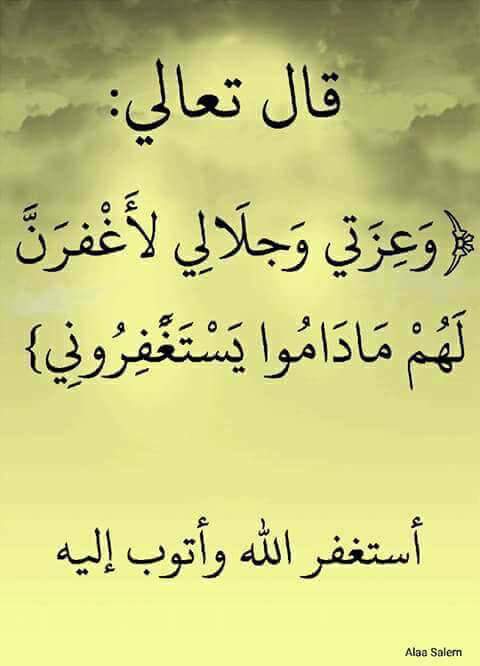 قال تعالي:
﴿وَعِزَتي وَجلَالِي لأَغْفرَنَّ
لَهُمْ مَادَامُوا يَسْتَغْفِرُونِي}
أستغفر الله وأتوب إليه
Alaa Salem